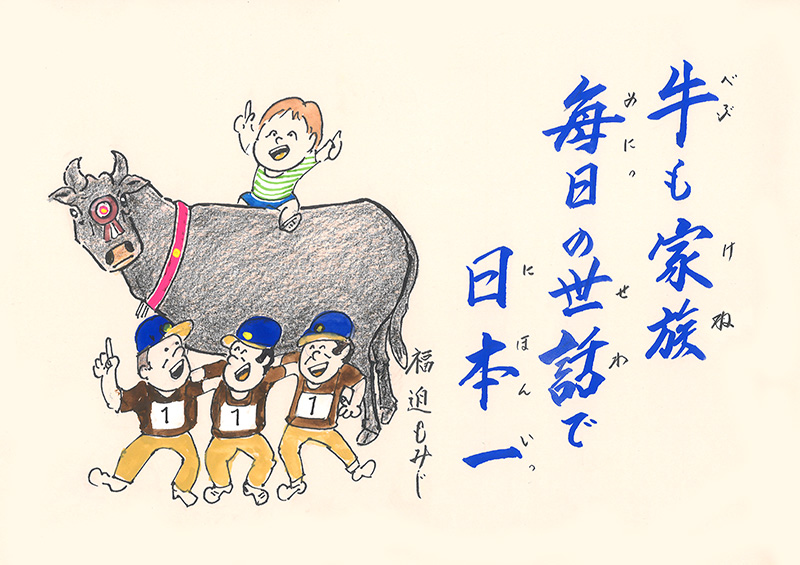 牛も家族
べぶ けね
毎日の世話で
めにっ せわ
日本一
にほんいっ
福迫もみじ
1
1
1